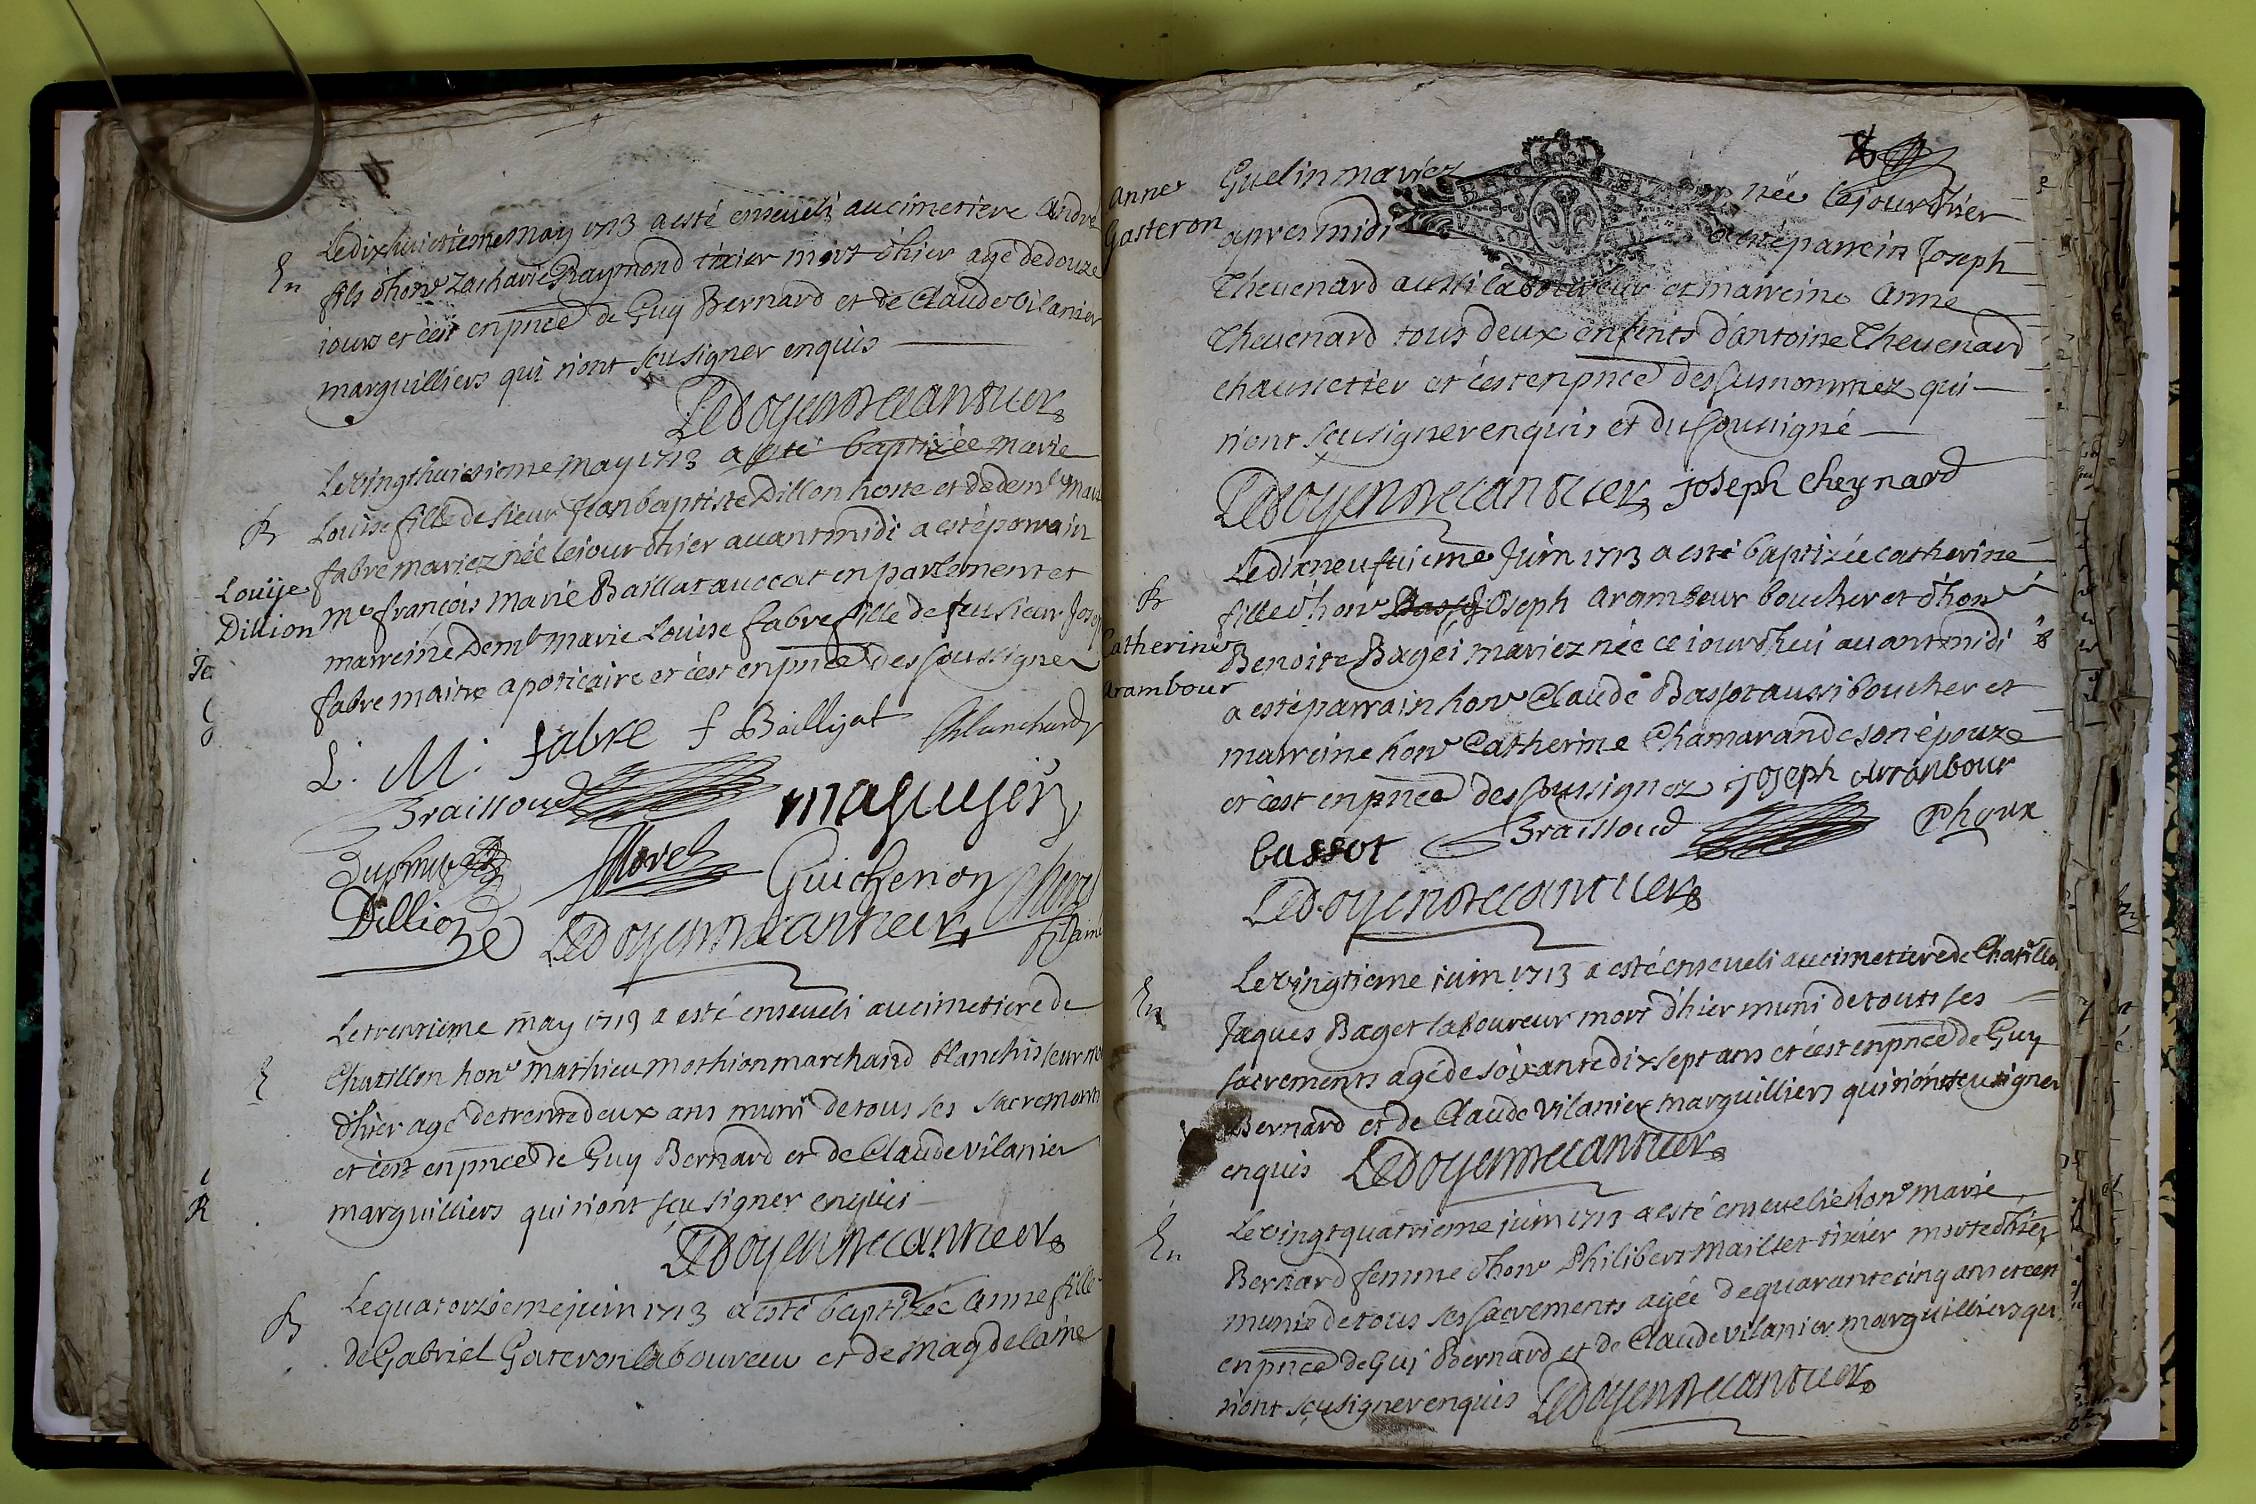 En
Le dixhuictieme may 1713 a esté enseveli au cimetiere André
fils d'hon^e Zacharie Raymond tixier mort d'hier agé de douze
iours et c'est en pnce de Guy Bernard et de Claude Vilanier
marguilliers qui n'ont sçu signer enquis
Ledoyen de cantuer
B
Louije
Dillion
Le vingthuictieme may 1713 a esté baptizée marie
Louise fille de sieur Jean baptiste Dillon hoste et de dem^le Marie
fabre mariez née le jour d'hier avant midi a esté parrain
M^e françois marie Baillat avocat en parlement et
marreine Dem^le marie Louise fabre fille de feu sieur Joseph
fabre maitre apoticaire et c'est en pnce des soussignez
L. M. fabre f Baillyat Blanchard
Braissoud maguyer
Morel Guichenon
Dillion Ledoyen de cantuer
E
Le trentieme may 1713 a esté enseveli au cimetiere de
Chatillon hon^e mathieu mothion marchand blanchisseur mort
d'hier agé de trente deux ans muni de tous ses sacrements
et c'est en pnce de Guy Bernard et de Claude vilanier
marguilliers qui n'ont sçu signer enquis
Ledoyen de cantuer
B
Le quatorzieme juin 1713 a esté baptizée Anne fille
de Gabriel Gateron laboureur et de magdelaine
Anne
Gasteron
Guelin mariez née le jour d'hier
apres midi a esté parrein Joseph
Thevenard aussi laboureur et marreine Anne
Thevenard tous deux enfents d'antoine Thevenard
chaussetier et c'est en pnce des susnommez qui
n'ont sçu signer enquis et du soussigné
Ledoyen de cantuer joseph cheynard
B
Catherine
Arambour
Le dixneufvieme Juin 1713 a esté baptizée catherine
fille d'hon^e Joseph Arambour boucher et d'hon^e
Benoite Bagei mariez née ce iourd'hui avant midi
a esté parrain hon^e Claude Bassot aussi boucher et
marreine hon^e Catherine Chamarande son épouze
et c'est en pnce des soussignez joseph Arranbour
bassot Braissoud Phoux
Ledoyen de cantuer
En
Le vingtieme juin 1713 a esté enseveli au cimetiere de Chatillon
Jaques Baget laboureur mort d'hier muni de touts ses
sacrements agé de soixante dix sept ans et c'est en pnce de Guy
Bernard et de Claude Vilanier marguilliers qui n'ont sçu signer
enquis Ledoyen de cantuer
En
Le vingt quatrieme juin 1713 a esté ensevelie hon^e marie
Bernard femme d'hon^e Philibert Maillet tixier morte d'hier
munie de tous ses sacrements agée de quarante cinq ans et c'est
en pnce de Gui Bernard et de Claude vilanier marguilliers qui
n'ont sçu signer enquis Ledoyen de cantuer